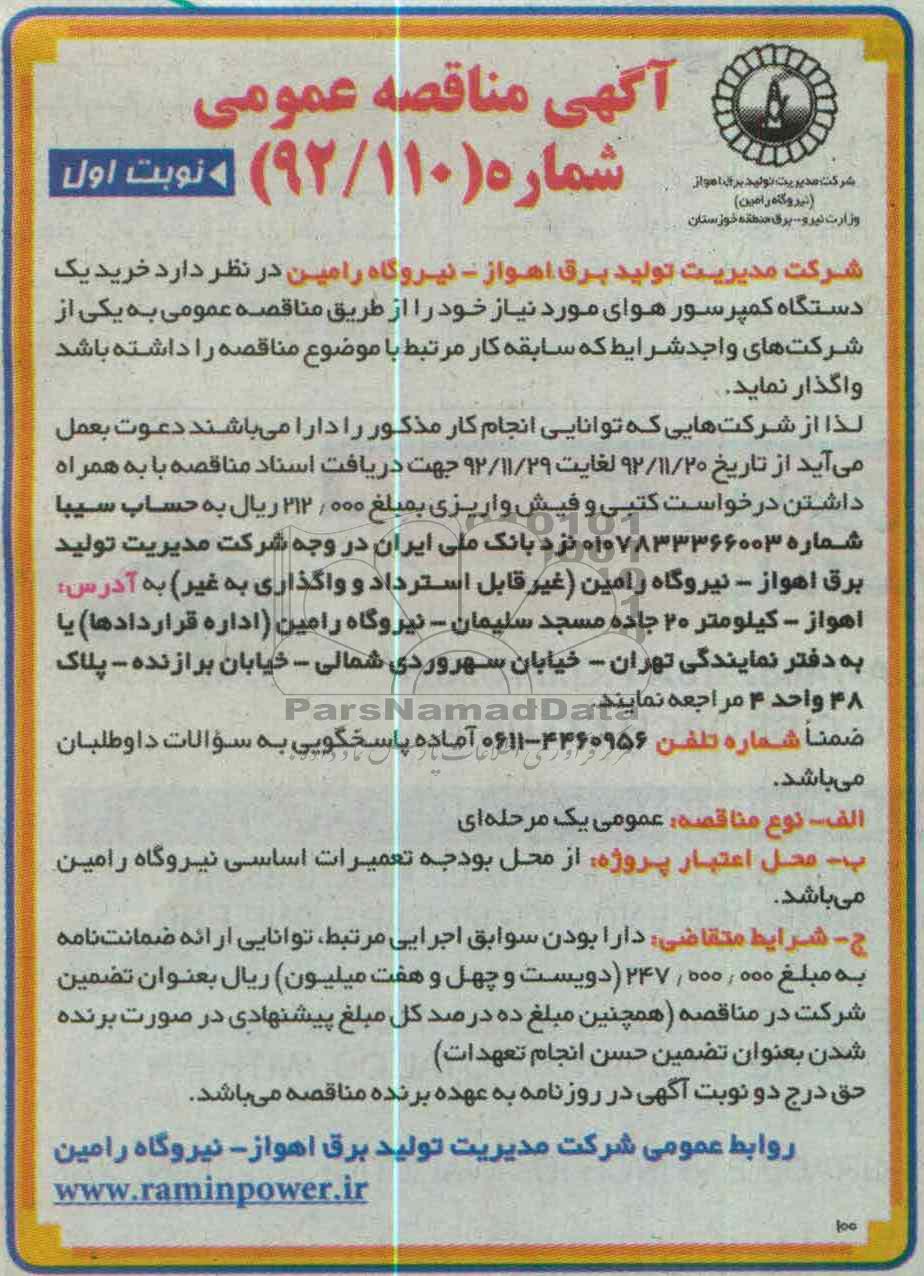 آگهی مناقصه عمومی
شماره (۹۲/۱۱۰)
نوبت اول
شرکت مدیریت تولید برق اهواز
(نیروگاه رامین)
وزارت نیرو-برق منطقه خوزستان
شرکت مدیریت تولید برق اهواز - نیروگاه رامین در نظر دارد خرید یک
دستگاه کمپرسور هوای مورد نیاز خود را از طریق مناقصه عمومی به یکی از
شرکت‌های واجدشرایط که سابقه کار مرتبط با موضوع مناقصه را داشته باشد
واگذار نماید.
لذا از شرکت‌هایی که توانایی انجام کار مذکور را دارا می‌باشند دعوت بعمل
می‌آید از تاریخ ۹۲/۱۱/۲۰ لغایت ۹۲/۱۱/۲۹ جهت دریافت اسناد مناقصه با به همراه
داشتن درخواست کتبی و فیش واریزی بمبلغ ۲۱۲٫۰۰۰ ریال به حساب سیبا
شماره ۰۱۰۷۸۳۳۳۶۶۰۰۳ نزد بانک ملی ایران در وجه شرکت مدیریت تولید
برق اهواز - نیروگاه رامین (غیرقابل استرداد و واگذاری به غیر) به آدرس:
اهواز - کیلومتر ۲۰ جاده مسجد سلیمان - نیروگاه رامین (اداره قراردادها) یا
به دفتر نمایندگی تهران - خیابان سهروردی شمالی - خیابان برازنده - پلاک
۴۸ واحد ۴ مراجعه نمایند.
ParsNamadData
ضمناً شماره تلفن ۴۴۶۰۹۵۶-۰۶۱۱ آماده پاسخگویی به سؤالات داوطلبان
می‌باشد.
الف- نوع مناقصه: عمومی یک مرحله‌ای
ب- محل اعتبار پروژه: از محل بودجه تعمیرات اساسی نیروگاه رامین
می‌باشد.
ج- شرایط متقاضی: دارا بودن سوابق اجرایی مرتبط، توانایی ارائه ضمانت‌نامه
به مبلغ ۲۴۷٫۰۰۰٫۰۰۰ (دویست و چهل و هفت میلیون) ریال بعنوان تضمین
شرکت در مناقصه (همچنین مبلغ ده درصد کل مبلغ پیشنهادی در صورت برنده
شدن بعنوان تضمین حسن انجام تعهدات)
حق درج دو نوبت آگهی در روزنامه به عهده برنده مناقصه می‌باشد.
روابط عمومی شرکت مدیریت تولید برق اهواز- نیروگاه رامین
www.raminpower.ir
۱۰۰